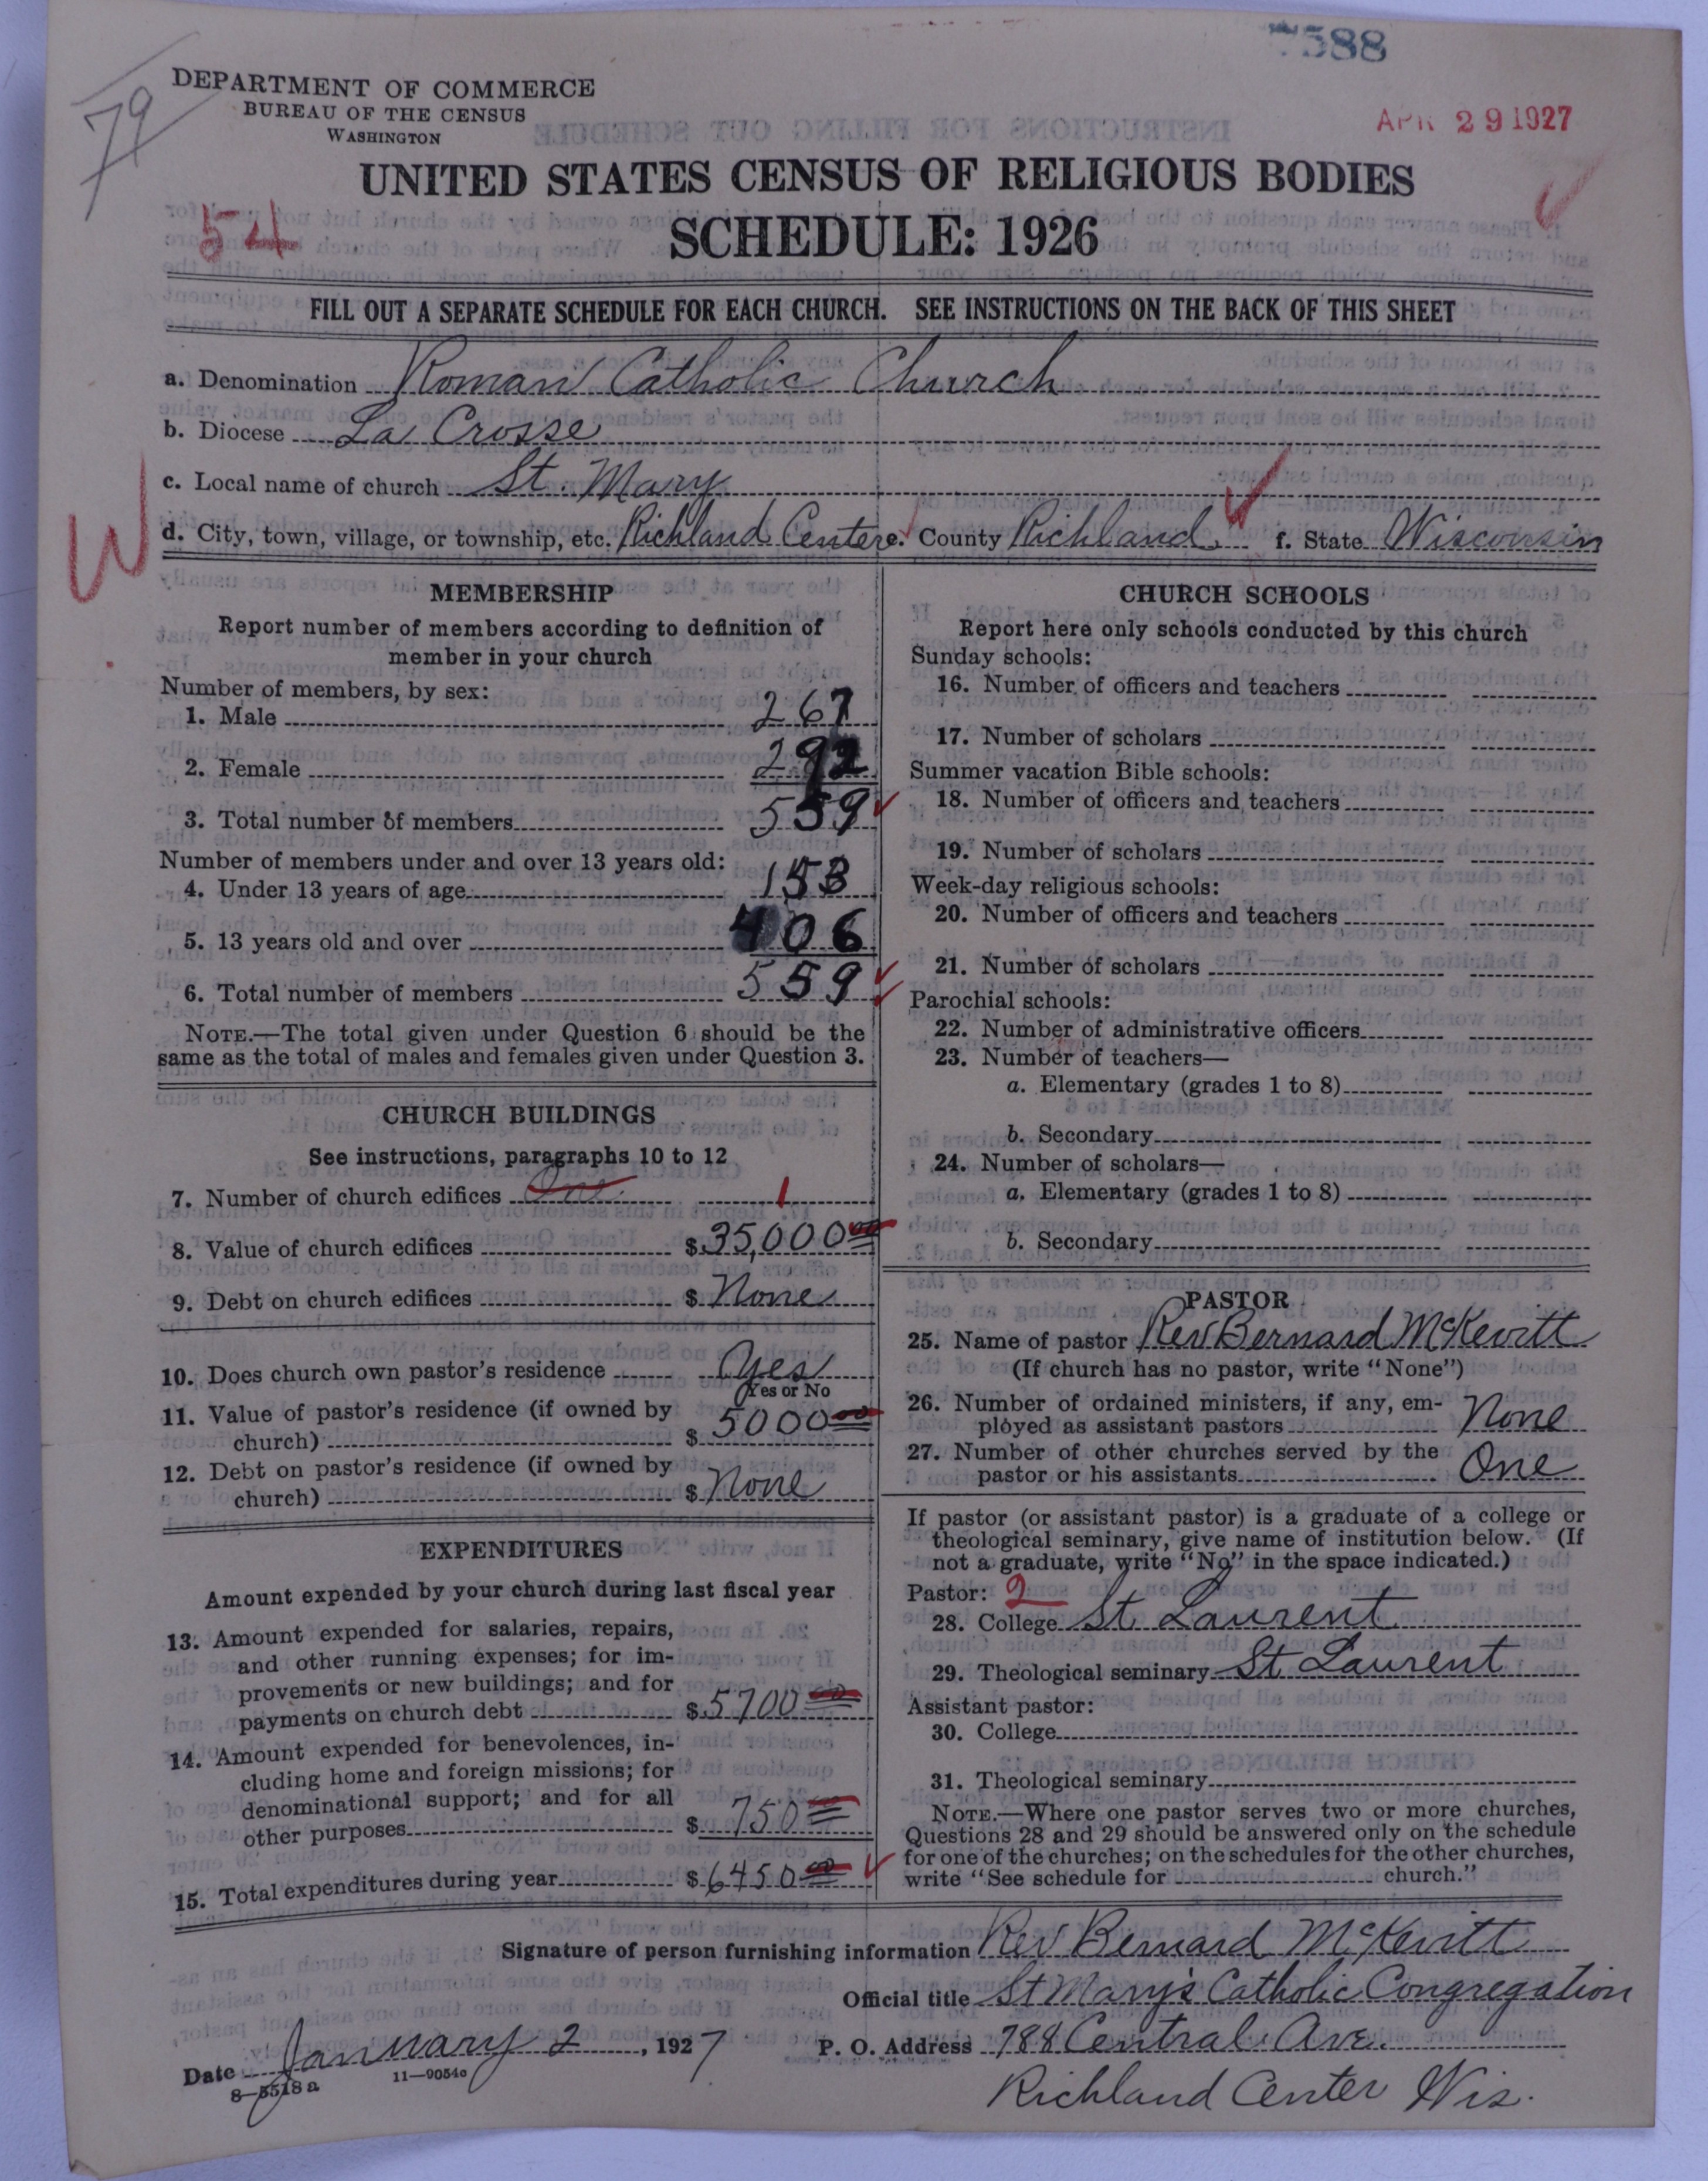 588
79
DEPARTMENT OF COMMERCE
BUREAU OF THE CENSUS
WASHINGTON
APR 29 1927
UNITED STATES CENSUS OF RELIGIOUS BODIES
54
SCHEDULE: 1926
FILL OUT A SEPARATE SCHEDULE FOR EACH CHURCH. SEE INSTRUCTIONS ON THE BACK OF THIS SHEET
a. Denomination Roman Catholic Church
b. Diocese La Crosse
c. Local name of church St. Mary
W
d. City, town, village, or township, etc. Richland Center e. County Richland f. State Wisconsin
MEMBERSHIP
Report number of members according to definition of
member in your church
Number of members, by sex:
1. Male 267
2. Female 292
3. Total number of members 559
Number of members under and over 13 years old:
4. Under 13 years of age 153
5. 13 years old and over 406
6. Total number of members 559
NOTE.—The total given under Question 6 should be the
same as the total of males and females given under Question 3.
CHURCH BUILDINGS
See instructions, paragraphs 10 to 12
7. Number of church edifices One 1
8. Value of church edifices $ 35,000 00
9. Debt on church edifices $ None
10. Does church own pastor's residence Yes
Yes or No
11. Value of pastor's residence (if owned by
church) $ 5000 00
12. Debt on pastor's residence (if owned by
church) $ None
EXPENDITURES
Amount expended by your church during last fiscal year
13. Amount expended for salaries, repairs,
and other running expenses; for im-
provements or new buildings; and for
payments on church debt $ 5700 00
14. Amount expended for benevolences, in-
cluding home and foreign missions; for
denominational support; and for all
other purposes $ 750 00
15. Total expenditures during year $ 6450 00
CHURCH SCHOOLS
Report here only schools conducted by this church
Sunday schools:
16. Number of officers and teachers
17. Number of scholars
Summer vacation Bible schools:
18. Number of officers and teachers
19. Number of scholars
Week-day religious schools:
20. Number of officers and teachers
21. Number of scholars
Parochial schools:
22. Number of administrative officers
23. Number of teachers—
a. Elementary (grades 1 to 8)
b. Secondary
24. Number of scholars—
a. Elementary (grades 1 to 8)
b. Secondary
PASTOR
25. Name of pastor Rev Bernard McKevitt
(If church has no pastor, write "None")
26. Number of ordained ministers, if any, em-
ployed as assistant pastors None
27. Number of other churches served by the
pastor or his assistants One
If pastor (or assistant pastor) is a graduate of a college or
theological seminary, give name of institution below. (If
not a graduate, write "No" in the space indicated.)
Pastor: 2
28. College St Laurent
29. Theological seminary St Laurent
Assistant pastor:
30. College
31. Theological seminary
NOTE.—Where one pastor serves two or more churches,
Questions 28 and 29 should be answered only on the schedule
for one of the churches; on the schedules for the other churches,
write "See schedule for church."
Signature of person furnishing information Rev Bernard McKevitt
Official title St Mary's Catholic Congregation
Date January 2, 1927 P. O. Address 788 Central Ave.
8—5518 a 11—9054c
Richland Center Wis.